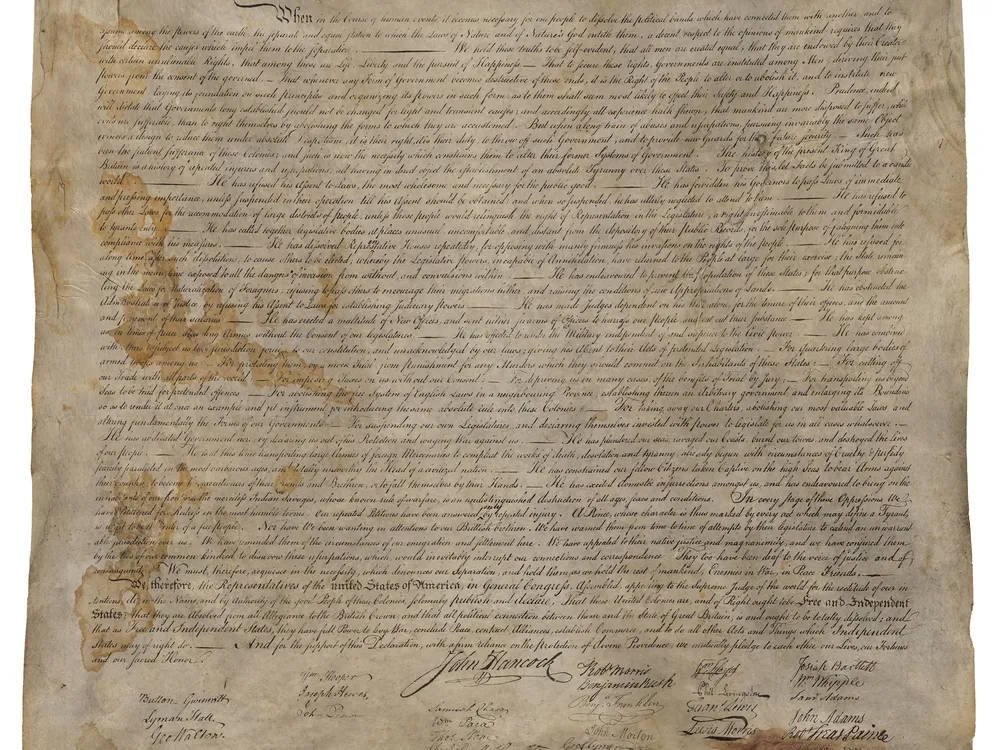 When in the Course of human events it becomes necessary for one people to dissolve the political bands which have connected them with another, and to
assume among the powers of the earth, the separate and equal station to which the Laws of Nature and of Nature's God entitle them, a decent respect to the opinions of mankind requires that they
should declare the causes which impel them to the separation. — We hold these truths to be self-evident, that all men are created equal, that they are endowed by their Creator
with certain unalienable Rights, that among these are Life, Liberty and the pursuit of Happiness — That to secure these rights, Governments are instituted among Men, deriving their just
powers from the consent of the governed — That whenever any Form of Government becomes destructive of these ends, it is the Right of the People to alter or to abolish it, and to institute new
Government, laying its foundation on such principles and organizing its powers in such form, as to them shall seem most likely to effect their Safety and Happiness. Prudence, indeed,
will dictate that Governments long established should not be changed for light and transient causes; and accordingly all experience hath shewn, that mankind are more disposed to suffer, while
evils are sufferable, than to right themselves by abolishing the forms to which they are accustomed. — But when a long train of abuses and usurpations, pursuing invariably the same Object
evinces a design to reduce them under absolute Despotism, it is their right, it is their duty, to throw off such Government, and to provide new Guards for their future security. — Such has
been the patient sufferance of these Colonies; and such is now the necessity which constrains them to alter their former Systems of Government. The history of the present King of Great
Britain is a history of repeated injuries and usurpations, all having in direct object the establishment of an absolute Tyranny over these States. To prove this, let Facts be submitted to a candid
world. — He has refused his Assent to Laws, the most wholesome and necessary for the public good. — He has forbidden his Governors to pass Laws of immediate
and pressing importance, unless suspended in their operation till his Assent should be obtained; and when so suspended, he has utterly neglected to attend to them — He has refused to
pass other Laws for the accommodation of large districts of people, unless those people would relinquish the right of Representation in the Legislature, a right inestimable to them and formidable
to tyrants only. — He has called together legislative bodies, at places unusual, uncomfortable, and distant from the depository of their public Records, for the sole purpose of fatiguing them into
compliance with his measures. — He has dissolved Representative Houses repeatedly, for opposing with manly firmness his invasions on the rights of the people — He has refused for
a long time, after such dissolutions, to cause others to be elected; whereby the Legislative powers, incapable of Annihilation, have returned to the People at large for their exercise; the State remain-
ing in the mean time exposed to all the dangers of invasion from without, and convulsions within. — He has endeavoured to prevent the Population of these States; for that purpose obstruc-
ting the Laws for Naturalization of Foreigners; refusing to pass others to encourage their migrations hither, and raising the conditions of new Appropriations of Lands. — He has obstructed the
Administration of Justice, by refusing his Assent to Laws for establishing Judiciary powers — He has made Judges dependent on his Will alone, for the tenure of their offices, and the amount
and payment of their salaries — He has erected a multitude of New Offices, and sent hither swarms of Officers to harrass our people, and eat out their substance — He has kept among
us, in times of peace, Standing Armies without the Consent of our legislatures. — He has affected to render the Military independent of and superior to the Civil power — He has combined
with others to subject us to a jurisdiction foreign to our constitution, and unacknowledged by our laws; giving his Assent to their Acts of pretended Legislation: — For quartering large bodies of
armed troops among us: — For protecting them, by a mock Trial from punishment for any Murders which they should commit on the Inhabitants of these States: — For cutting off
our Trade with all parts of the world: — For imposing Taxes on us without our Consent: — For depriving us in many cases of the benefits of Trial by Jury: — For transporting us beyond
Seas to be tried for pretended offences — For abolishing the free System of English Laws in a neighbouring Province, establishing therein an Arbitrary government and enlarging its Boundaries
so as to render it at once an example and fit instrument for introducing the same absolute rule into these Colonies: — For taking away our Charters, abolishing our most valuable Laws and
altering fundamentally the Forms of our Governments: — For suspending our own Legislatures, and declaring themselves invested with power to legislate for us in all cases whatsoever. —
He has abdicated Government here, by declaring us out of his Protection and waging War against us. — He has plundered our seas, ravaged our Coasts, burnt our towns, and destroyed the lives
of our people. — He is at this time transporting large Armies of foreign Mercenaries to compleat the works of death, desolation and tyranny, already begun with circumstances of Cruelty & perfidy
scarcely paralleled in the most barbarous ages, and totally unworthy the Head of a civilized nation. — He has constrained our fellow Citizens taken Captive on the high Seas to bear Arms against
their Country, to become the executioners of their friends and Brethren, or to fall themselves by their Hands. — He has excited domestic insurrections amongst us, and has endeavoured to bring on the
inhabitants of our frontiers the merciless Indian Savages, whose known rule of warfare, is an undistinguished destruction of all ages, sexes and conditions. In every stage of these Oppressions We
have Petitioned for Redress in the most humble terms: Our repeated Petitions have been answered only by repeated injury. A Prince, whose character is thus marked by every act which may define a Tyrant,
is unfit to be the ruler of a free people. Nor have We been wanting in attentions to our Brittish brethren. We have warned them from time to time of attempts by their legislature to extend an unwarrant-
able jurisdiction over us. We have reminded them of the circumstances of our emigration and settlement here. We have appealed to their native justice and magnanimity, and we have conjured them
by the ties of our common kindred to disavow these usurpations, which, would inevitably interrupt our connections and correspondence. They too have been deaf to the voice of justice and of
consanguinity. We must, therefore, acquiesce in the necessity, which denounces our Separation, and hold them, as we hold the rest of mankind, Enemies in War, in Peace Friends. —
We, therefore, the Representatives of the united States of America, in General Congress, Assembled, appealing to the Supreme Judge of the world for the rectitude of our in-
tentions, do, in the Name, and by authority of the good People of these Colonies, solemnly publish and declare, That these United Colonies are, and of Right ought to be Free and Independent
States; that they are Absolved from all Allegiance to the British Crown, and that all political connection between them and the State of Great Britain, is and ought to be totally dissolved; and
that as Free and Independent States, they have full Power to levy War, conclude Peace, contract Alliances, establish Commerce, and to do all other Acts and Things which Independent
States may of right do. — And for the support of this Declaration, with a firm reliance on the Protection of divine Providence, we mutually pledge to each other our Lives, our Fortunes
and our sacred Honor.
John Hancock
Button Gwinnett
Lyman Hall
Geo Walton.
Wm Hooper
Joseph Hewes,
John Penn
Samuel Chase
Wm Paca
Thos Stone
Robt Morris
Benjamin Rush
Benj. Franklin
John Morton
Geo Clymer
Wm Floyd
Phil. Livingston
Frans. Lewis
Lewis Morris
Josiah Bartlett
Wm Whipple
Saml Adams
John Adams
Robt Treat Paine